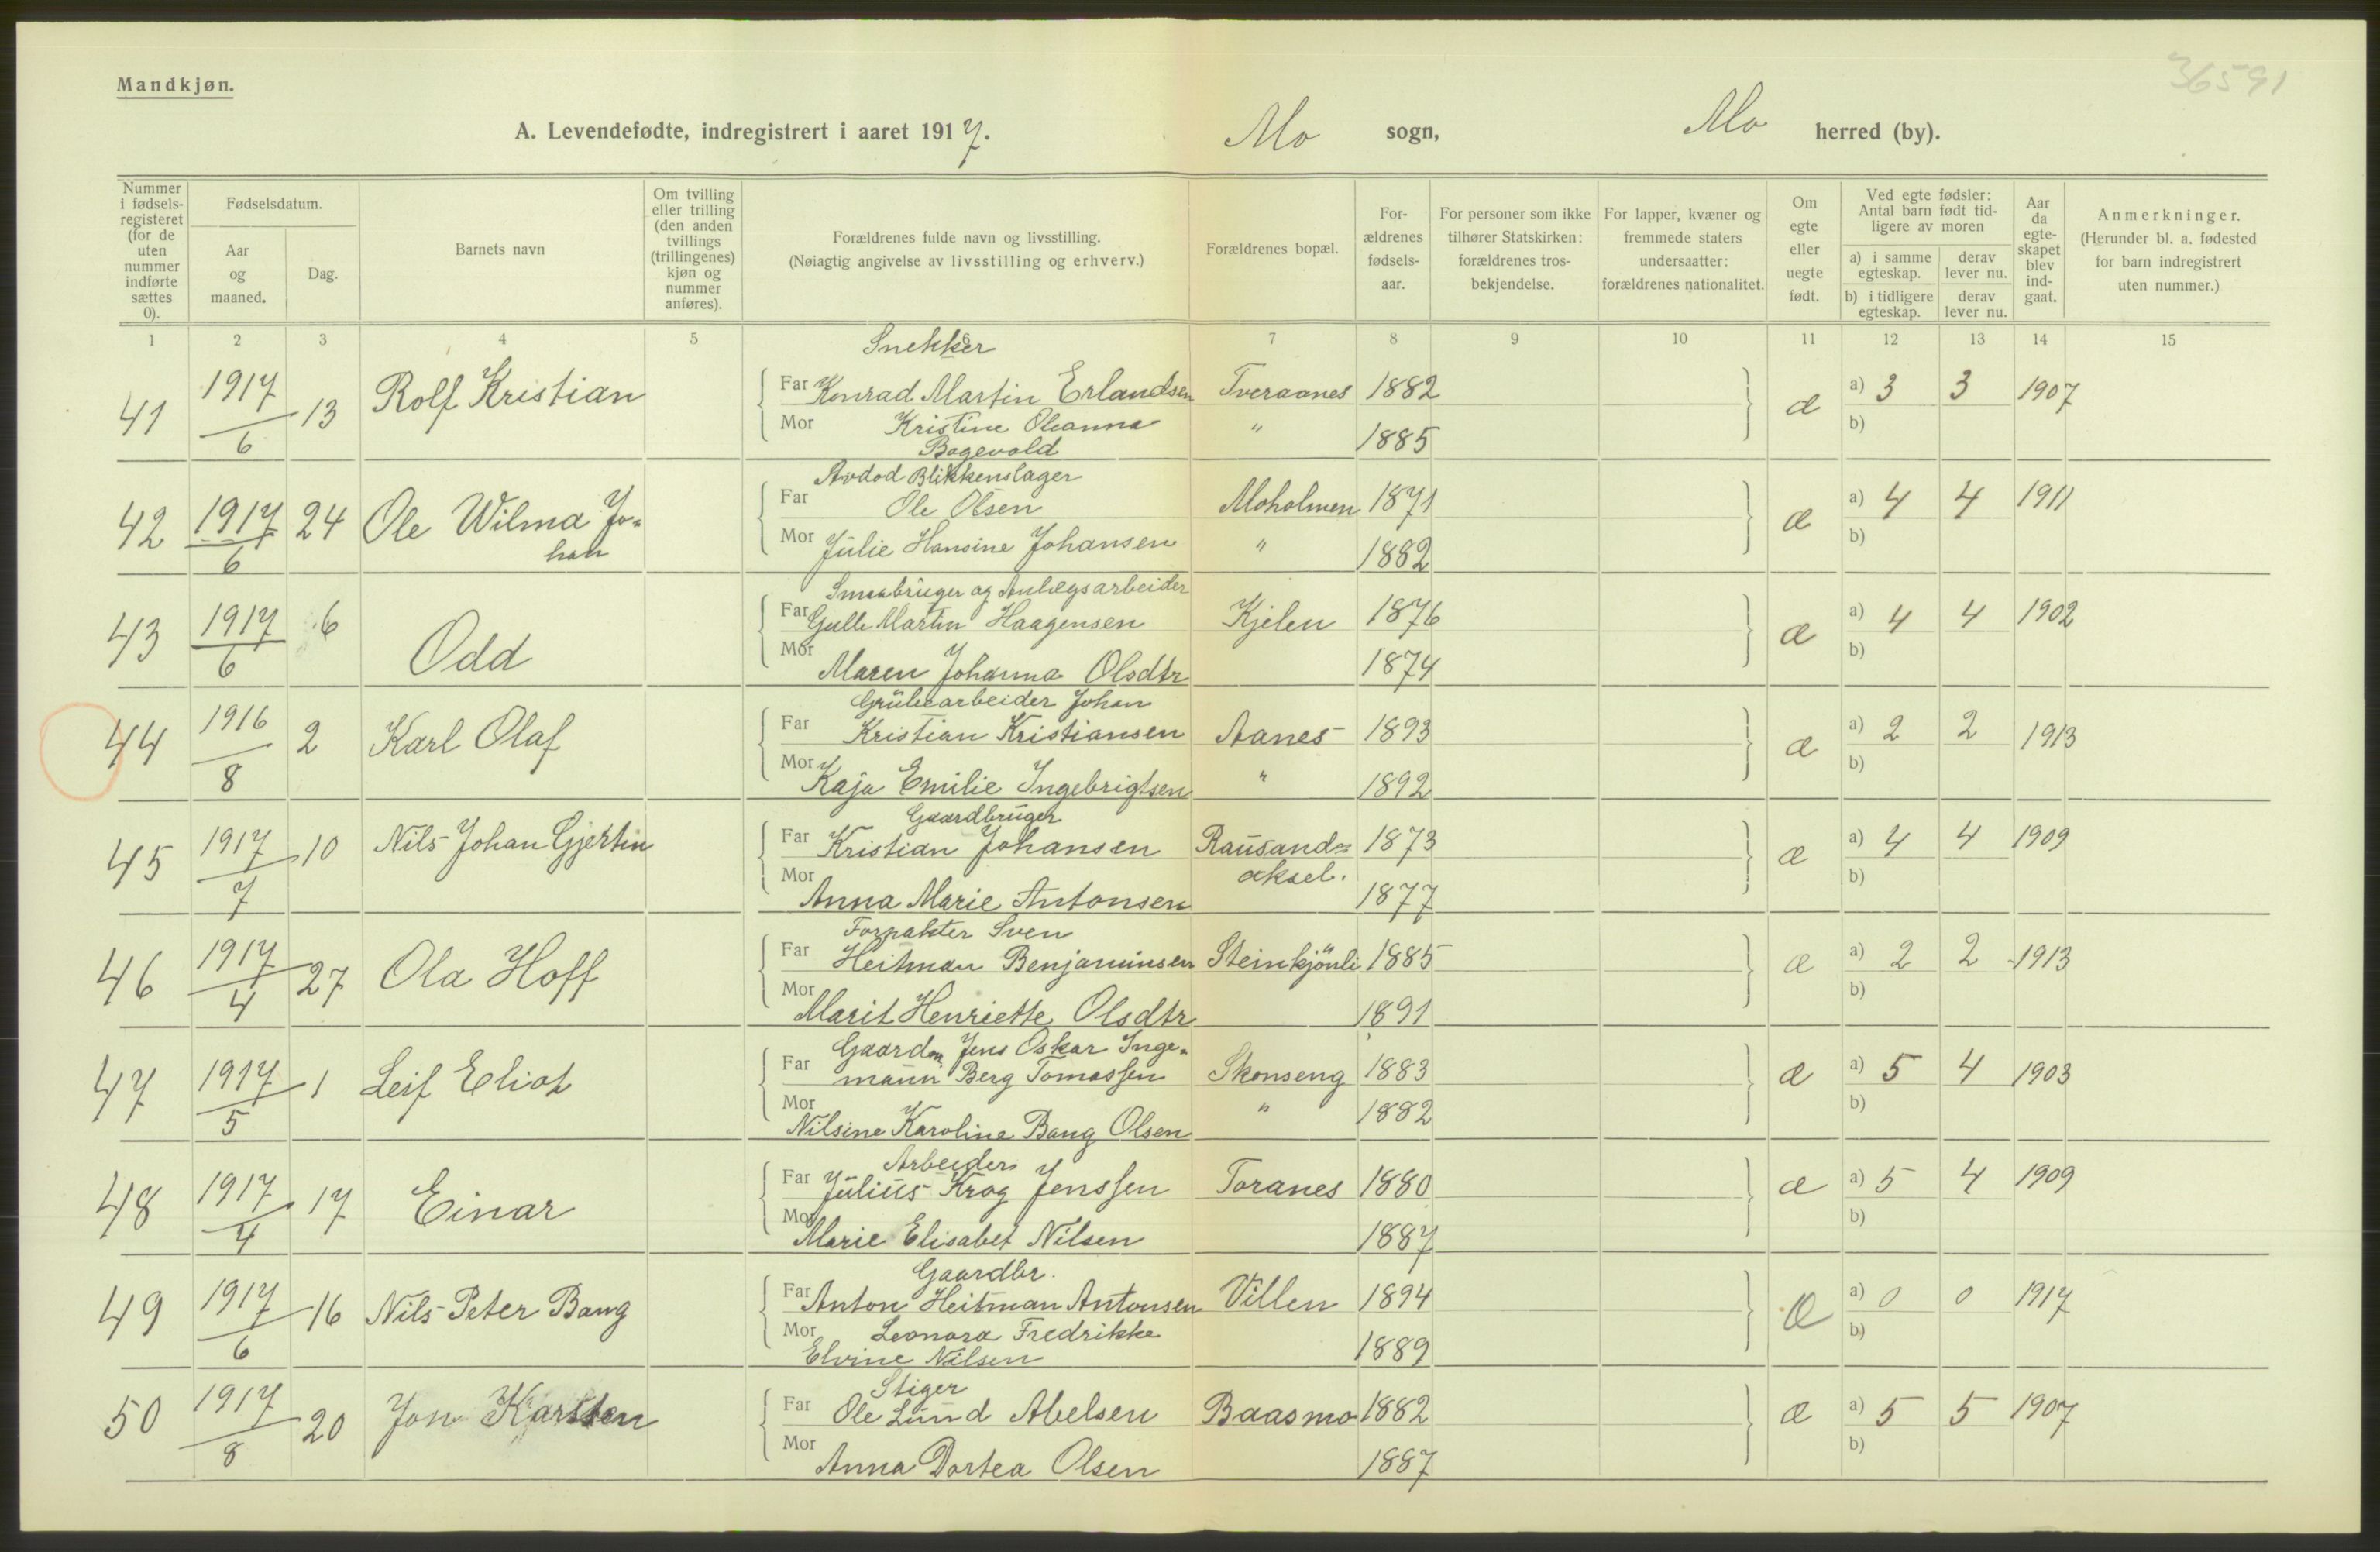 36591
Mandkjøn.
A. Levendefødte, indregistrert i aaret 1917. Mo sogn, Mo herred (by).
Nummer i fødselsregisteret (for de uten nummer indførte sættes 0).
Fødselsdatum.
Aar og maaned.
Dag.
Barnets navn
Om tvilling eller trilling (den anden tvillings (trillingenes) kjøn og nummer anføres).
Forældrenes fulde navn og livsstilling.
(Nøiagtig angivelse av livsstilling og erhverv.)
Forældrenes bopæl.
For-ældrenes fødsels-aar.
For personer som ikke tilhører Statskirken: forældrenes tros-bekjendelse.
For lapper, kvæner og fremmede staters undersaatter: forældrenes nationalitet.
Om egte eller uegte født.
Ved egte fødsler: Antal barn født tid-ligere av moren
a) i samme egteskap.
derav lever nu.
b) i tidligere egteskap.
derav lever nu.
Aar da egte-skapet blev ind-gaat.
Anmerkninger.
(Herunder bl. a. fødested for barn indregistrert uten nummer.)
1 2 3 4 5 6 7 8 9 10 11 12 13 14 15
Snekker
41 1917/6 13 Rolf Kristian Far Konrad Martin Erlandsen Tveraanes 1882 æ a) 3 3 1907
Mor Kristine Oleanna " 1885 b)
Bogevold
Avdød Blikkenslager
42 1917/6 24 Ole Wilma Jo= Far Ole Olsen Moholmen 1871 æ a) 4 4 1911
han Mor Julie Hansine Johansen " 1882 b)
Smaabruger og Anlægsarbeider
43 1917/6 6 Odd Far Gulle Martin Haagensen Kjelen 1876 æ a) 4 4 1902
Mor Maren Johanna Olsdtr 1874 b)
Grubearbeider Johan
44 1916/8 2 Karl Olaf Far Kristian Kristiansen Aanes 1893 æ a) 2 2 1913
Mor Kaja Emilie Ingebrigtsen " 1892 b)
Gaardbruger
45 1917/7 10 Nils Johan Gjertin Far Kristian Johansen Rausand= 1873 æ a) 4 4 1909
aksel.
Mor Anna Marie Antonsen 1877 b)
Forpakter Sven
46 1917/4 27 Ola Hoff Far Heitman Benjaminsen Steinkjönli 1885 æ a) 2 2 1913
Mor Marit Henriette Olsdtr 1891 b)
Gaardm Jens Oskar Inge=
47 1917/5 1 Leif Eliot Far mann Berg Tomassen Skonseng 1883 æ a) 5 4 1903
Mor Nilsine Karoline Bang Olsen " 1882 b)
Arbeider
48 1917/4 17 Einar Far Julius Krog Jenssen Toranes 1880 æ a) 5 4 1909
Mor Marie Elisabet Nilsen 1887 b)
Gaardbr.
49 1917/6 16 Nils Peter Bang Far Anton Heitman Antonsen Villen 1894 Æ a) 0 0 1917
Mor Leonora Fredrikke b)
Elvine Nilsen 1889
Stiger
50 1917/8 20 Jon Karsten Far Ole Lund Abelsen Baasmo 1882 æ a) 5 5 1907
Mor Anna Dortea Olsen 1887 b)